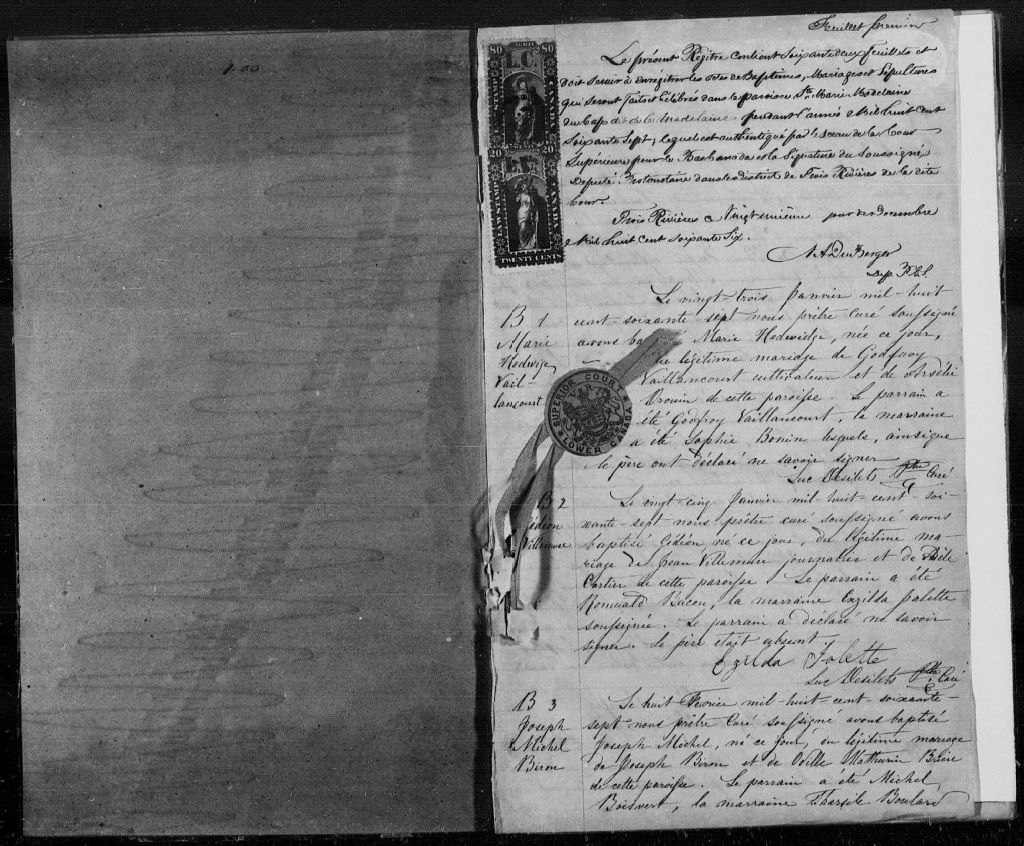 1.00
Feuillet premier
80 EIGHTY 80
L.C.
LAW STAMP
CANADA
20 20
L.C.
LAW STAMP
CANADA
TWENTY CENTS
Le présent Régitre contient Soixante deux feuillets et
doit servir à enrégitrer les Actes de Baptêmes, Mariages et Sépultures
qui seront faits et célébrés dans la paroisse Ste Marie Madelaine
du Cap de la Madelaine pendant l'année Mil huit Cent
Soixante Sept, lequel est authentiqué par le sceau de la Cour
Supérieure pour le Bas Canada et la Signature du Soussigné
Député Protonotaire dans le district de Trois Rivières de la dite
Cour.
Trois Rivières ce Vingt unième jour de Decembre
Mil huit Cent soixante Six.
Dep. P.C.S.
B 1
Marie
Hedwige
Vail-
lancourt
Le vingt-trois Janvier mil-huit
cent-soixante-sept nous prêtre curé soussigné
avons Marie Hedwidge, née ce jour,
légitime mariage de Godfroy
Vaillancourt cultivateur et de
Drouin de cette paroisse. Le parrain a
été Godfroy Vaillancourt, la marraine
a été Sophie Bonin lesquels, ainsique
le père ont déclaré ne savoir signer
Luc Desilets Ptre Curé
SUPERIOR COURT
LOWER CANADA
B 2
Gédéon
Villemure
Le vingt-cinq Janvier mil-huit-cent-soi-
xante-sept nous prêtre curé soussigné avons
baptisé Gédéon né ce jour, du légitime ma-
riage de Jean Villemure journalier et de Adèle
Cartier de cette paroisse. Le parrain a été
Romuald, la marraine Exzilda
soussignée. Le parrain a déclaré ne savoir
signer. Le père était absent
Luc Desilets Ptre Curé
B 3
Joseph
Michel
Biron
Le huit Fevrier mil-huit-cent-soixante-
sept nous prêtre Curé soussigné avons baptisé
Joseph Michel, né ce jour, du légitime mariage
de Joseph Biron et de Odille Mathurin
de cette paroisse. Le parrain a été Michel
Boisvert, la marraine Tharsile Boulard